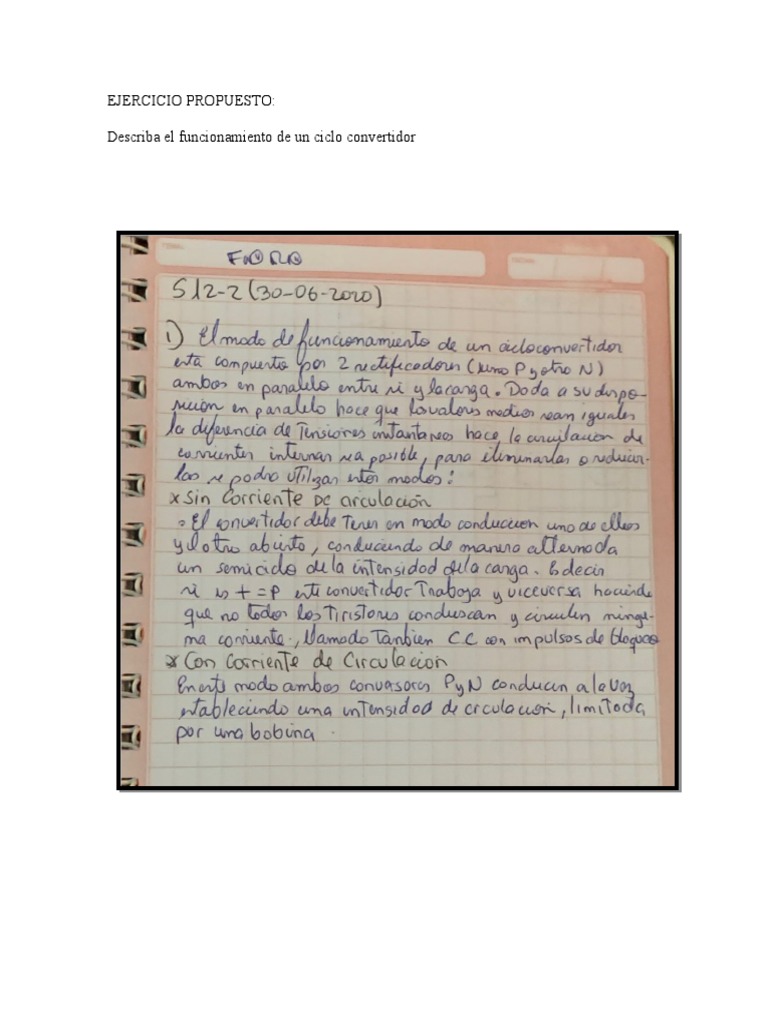 EJERCICIO PROPUESTO:
Describa el funcionamiento de un ciclo convertidor
FORO
S12-2 (30-06-2020)
1) El modo de funcionamiento de un cicloconvertidor
esta compuesto por 2 rectificadores ( uno P y otro N)
ambos en paralelo entre si y la carga. Dada a su dispo-
sición en paralelo hace que los valores medios sean iguales
la diferencia de Tensiones instantaneas hace la circulación de
corrientes internas sea posible, para eliminarlas o reducir-
las se podra utilizar estos modos:
x Sin Corriente De circulación
El convertidor debe tener en modo conduccion uno de ellos
y el otro abierto, conduciendo de manera alternada
un semiciclo de la intensidad de la carga. Es decir
si es + = P este convertidor Trabaja y viceversa haciendo
que no todos los Tiristores conduscan y circulen ningu-
na corriente, llamado Tambien C C con impulsos de bloqueo
x Con Corriente de Circulación
En este modo ambos conversores P y N conducen a la vez
estableciendo una intensidad de circulacion, limitada
por una bobina.